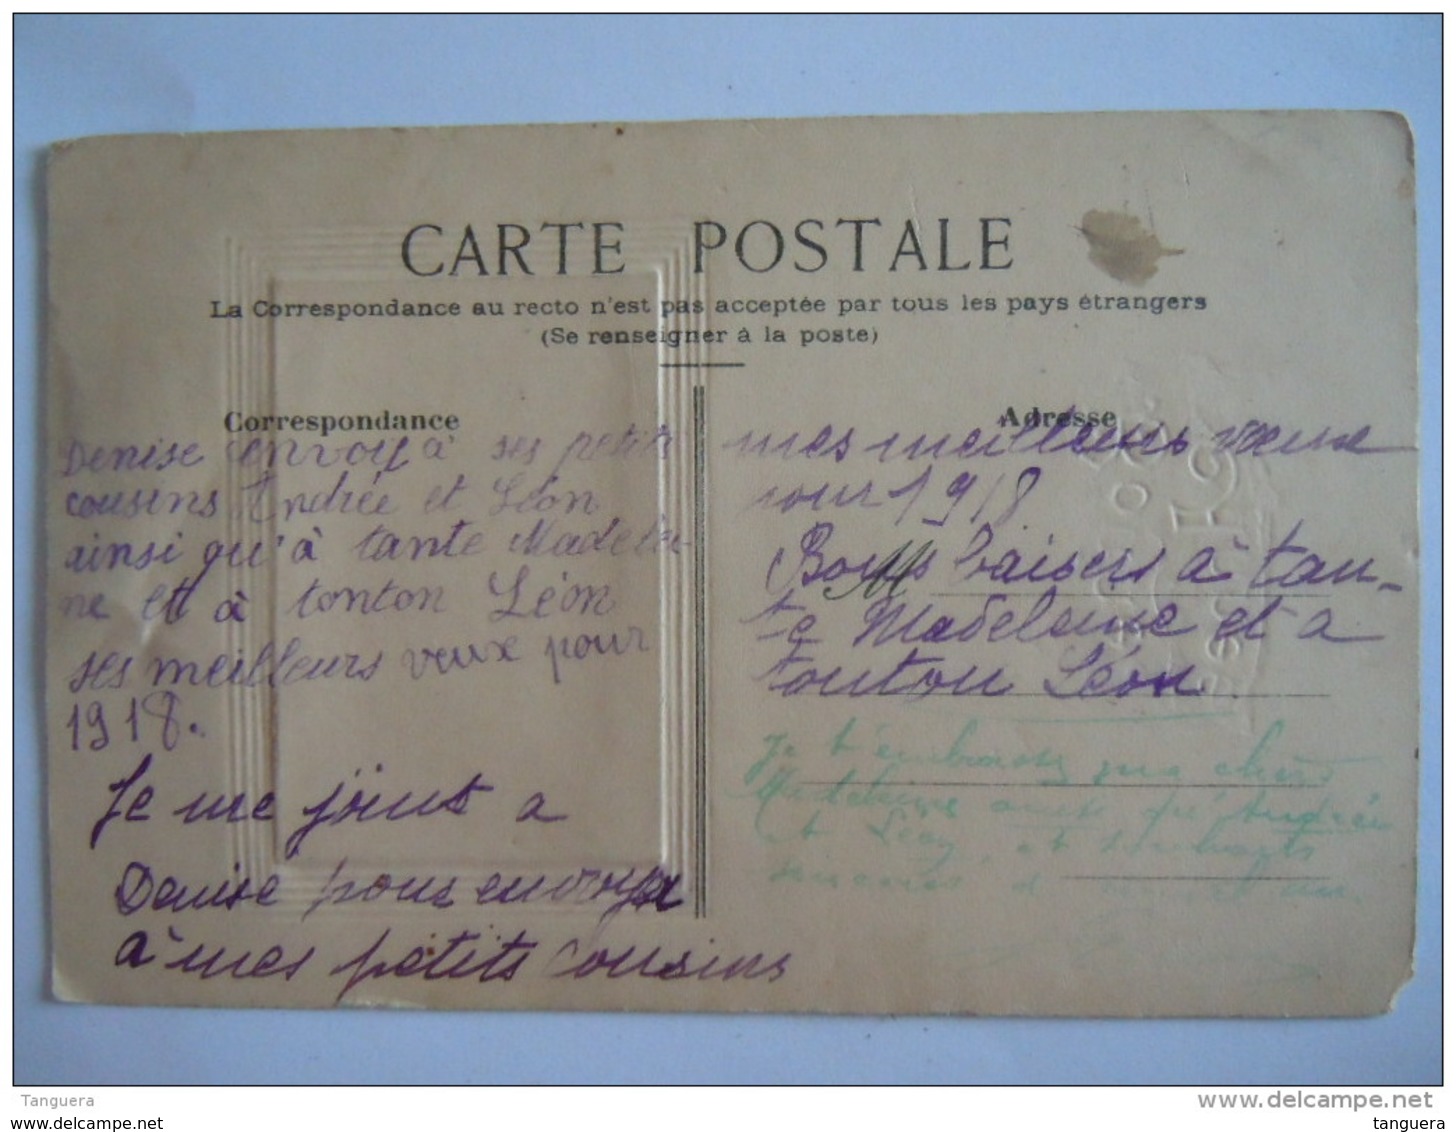 CARTE POSTALE
La Correspondance au recto n'est pas acceptée par tous les pays étrangers
(Se renseigner à la poste)
Correspondance
Denise envoy à ses petits
cousins Andrée et Léon
ainsi qu'à tante Madelei
ne et à tonton Léon
ses meilleurs veux pour
1918.
Je me joint a
Denise pour envoyer
à mes petits cousins
Adresse
mes meilleurs veux
pour 1918
Bons baisers à tan-
te Madeleine et a
tonton Léon
Je t'embrasse ma chère
Madeleine qu'Andrée
et Léon, et
Tanguera
www.delcampe.net
Tanguera
www.delcampe.net
tanguera